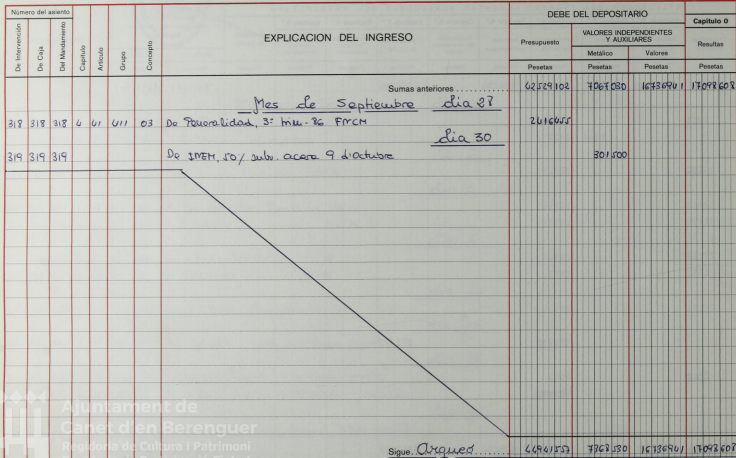 Número del asiento
De Intervención De Caja Del Mandamiento Capítulo Artículo Grupo Concepto
EXPLICACION DEL INGRESO
DEBE DEL DEPOSITARIO
Presupuesto
VALORES INDEPENDIENTES Y AUXILIARES
Metálico Valores
Capítulo 0
Resultas
Pesetas Pesetas Pesetas Pesetas
Sumas anteriores 42529102 7067030 16736941 17098608
Mes de Septiembre dia 28
318 318 318 4 41 411 03 De Generalidad, 3º trim. 86 FMCM 2416455
dia 30
319 319 319 De INEM, 50% sub. acera 9 d'octubre 301500
Sigue 7368530 16736941 17098608
Ajuntament de
Canet d'en Berenguer
Regidoria de Cultura i Patrimoni